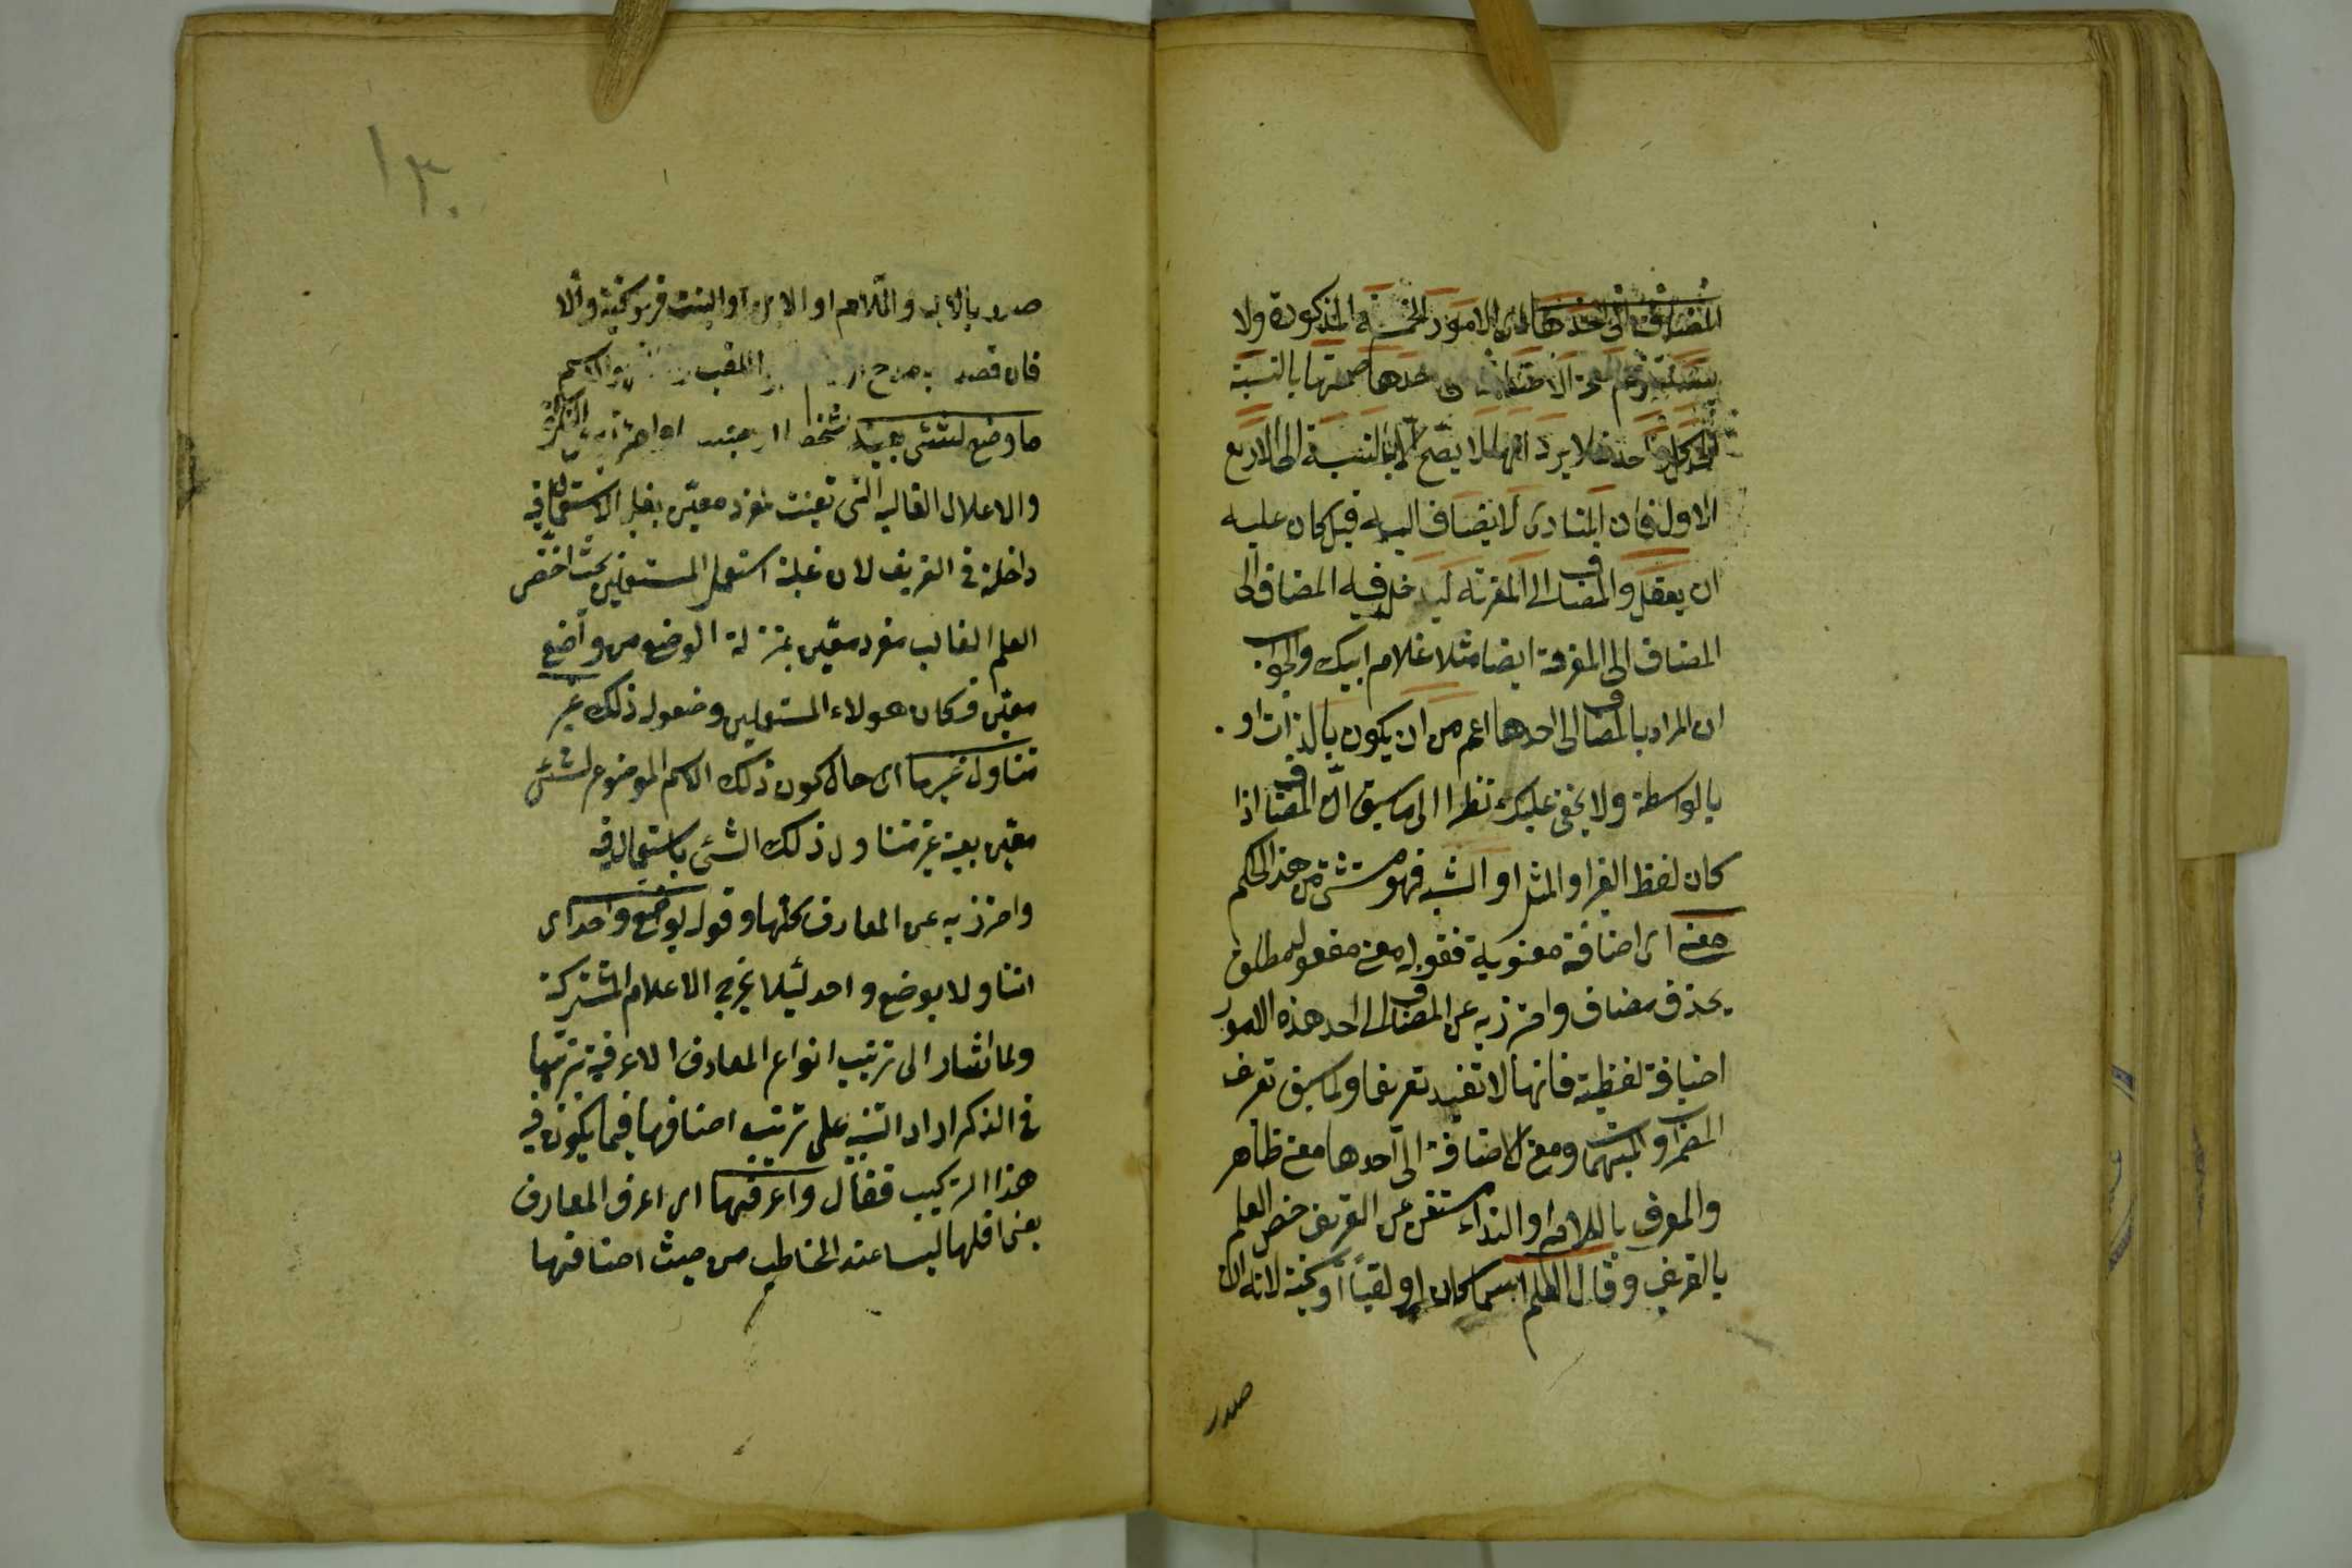 المضاف الى احدها اى الامور الخمسة المذكورة ولا
يستلزم صحة الاضافة الى احدها صحتها بالنسبة
الى كل واحد فلا يرد انه لا يصح الا بالنسبة الى الاربع
الاول فان المنادى لا يضاف اليه قيل كان عليه
ان يقول والمضاف الى المعرفة ليدخل فيه المضاف الى
المضاف الى المعرفة ايضا مثلا غلام ابيك والجواب
ان المراد بالمضاف الى احدها اعم من ان يكون بالذات او
بالواسطة ولا يخفى عليك نظرا الى ما سبق ان المضاف اذا
كان لفظ الغير او المثل او الشبه فهو مستثنى من هذا الحكم
معنى اى اضافة معنوية فقوله معنى مفعول مطلق
بحذف مضاف واحترز به عن المضاف الى احد هذه الامور
اضافة لفظية فانها لا تفيد تعريفا ولما سبق تعريف
المضمرات والمبهمات ومعنى الاضافة الى احدها معنى ظاهر
والمعرف باللام او النداء مستغن عن التعريف خص العلم
بالتعريف وقال العلم اسما كان او لقبا او كنية لانه ان
صدر
١٣٠
صدر بالاب والام او الابن او البنت فهو كنية والا
فان قصد به مدح او واللقب والاسم
ما وضع لشئ بعينه شخصا او جنسا احترز به عن النكرة
والاعلام الغالبة التى تعينت لفرد معين بغلبة الاستعمال فيه
داخلة فى التعريف لان غلبة استعمال المستعملين بحيث اختص
العلم الغالب بفرد معين بمنزلة الوضع من واضع
معين فكان هولاء المستعملين وضعوا له ذلك غير
متناول غيرها اى حال كون ذلك الاسم الموضوع لشئ
معين بعينه غير متناول ذلك الشئ باستعماله فيه
واحترز به عن المعارف كلها وقوله بوضع واحد اى
تناولا بوضع واحد لئلا يخرج الاعلام المشتركة
ولما اشار الى ترتيب انواع المعارف الاعرفية بترتيبها
فى الذكر اراد التنبيه على ترتيب اصنافها فيما يكون فيه
هذا التركيب فقال واعرفها اى اعرف المعارف
يعنى اقلها لبسا عند المخاطب من حيث اصنافها